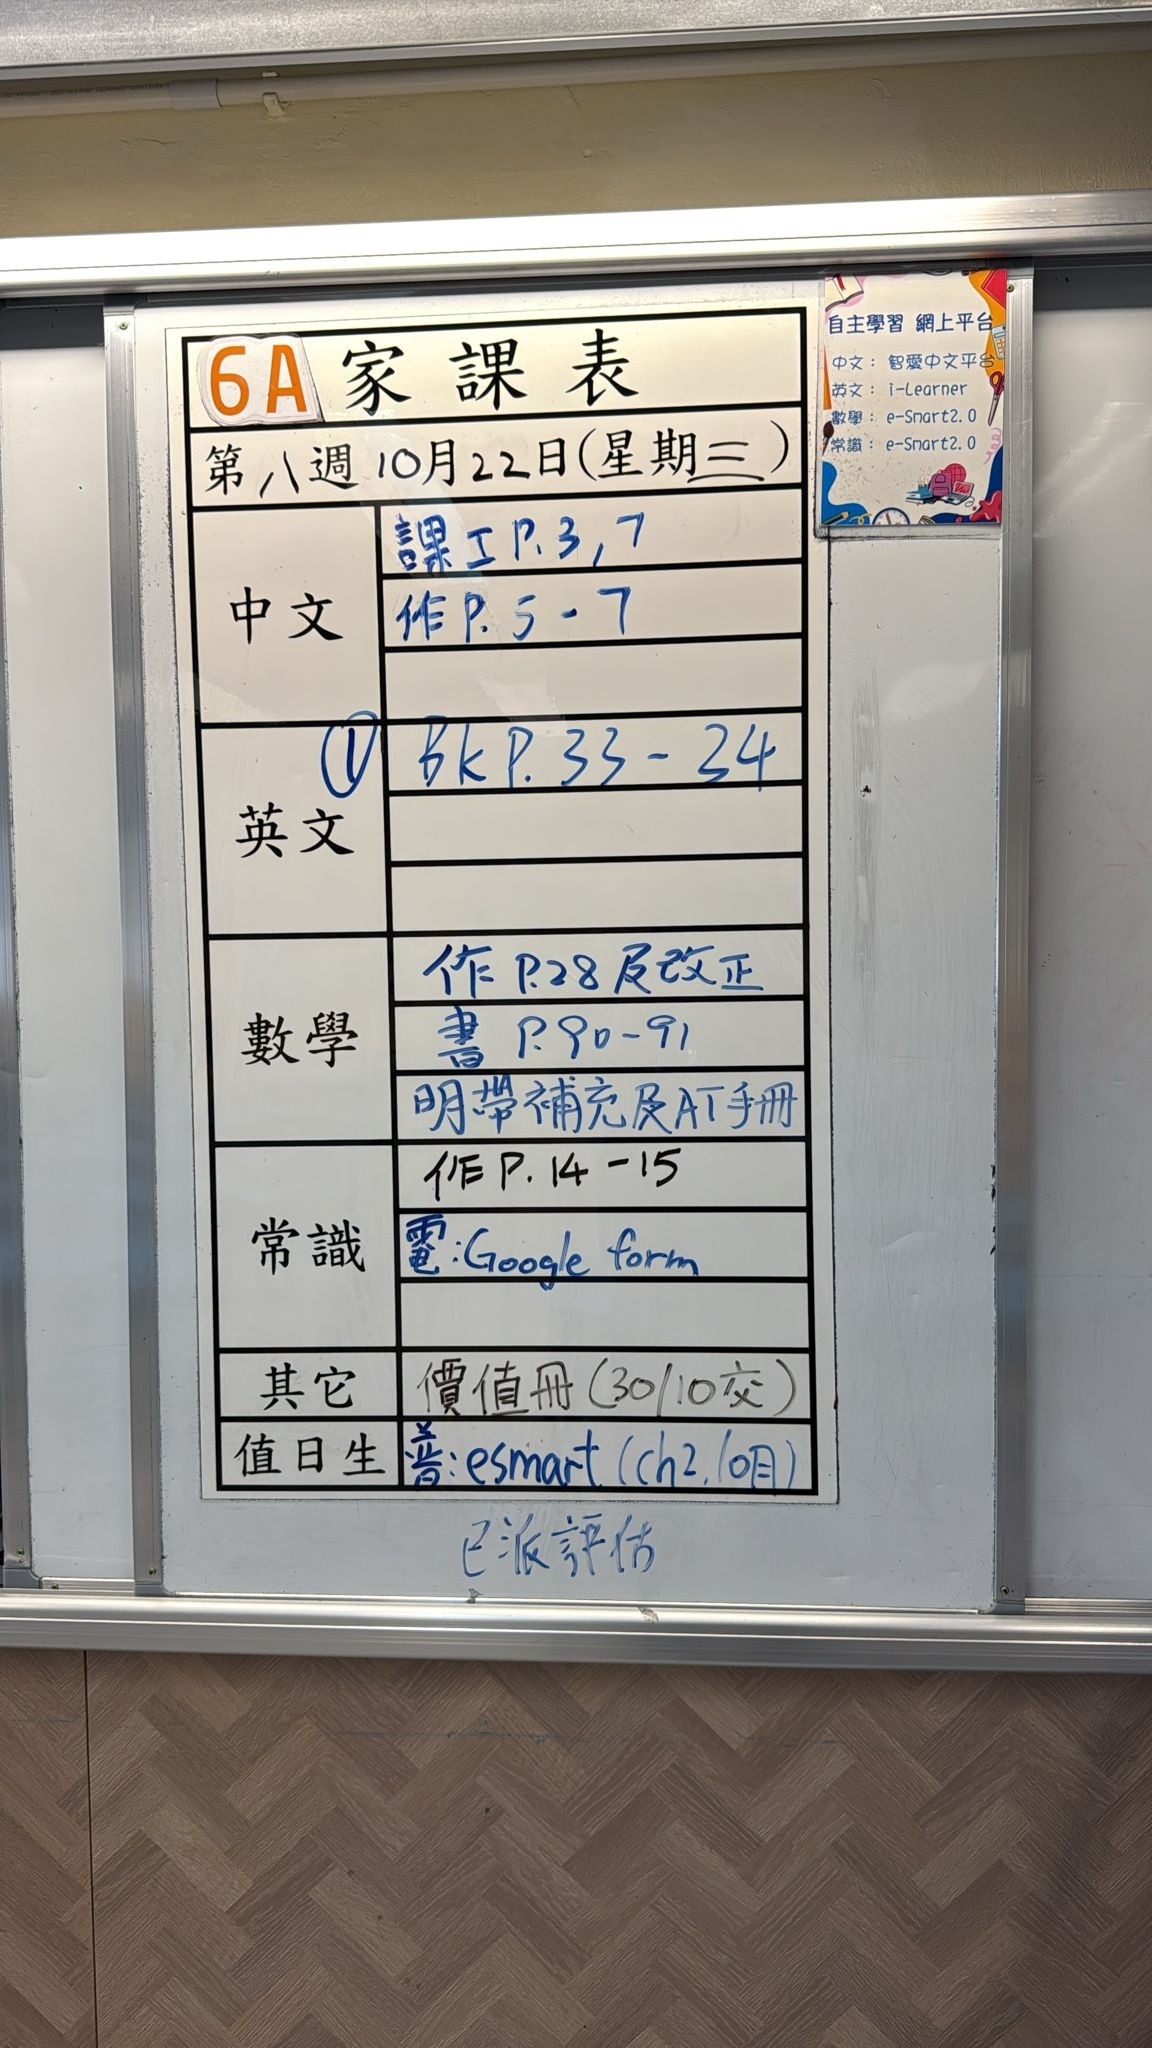 6A 家課表
第八週10月22日(星期三)
中文
課工 P.3,7
作 P. 5-7
英文
① Bk P. 33-34
數學
作 P.28 及改正
書 P.90-91
明帶補充及AT手冊
常識
作 P. 14-15
電:Google form
其它
價值冊(30/10交)
值日生
普:esmart (ch2, 10月)
已派評估
自主學習 網上平台
中文: 智愛中文平台
英文: i-Learner
數學: e-Smart2.0
常識: e-Smart2.0